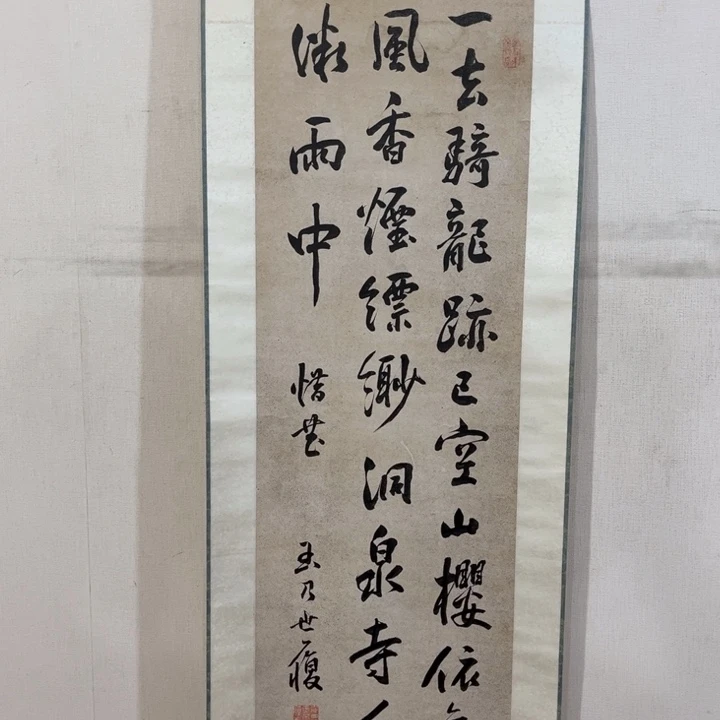 一去騎龍跡已空山櫻依
風香煙縹緲洞泉寺
微雨中
惜花
玉乃世履